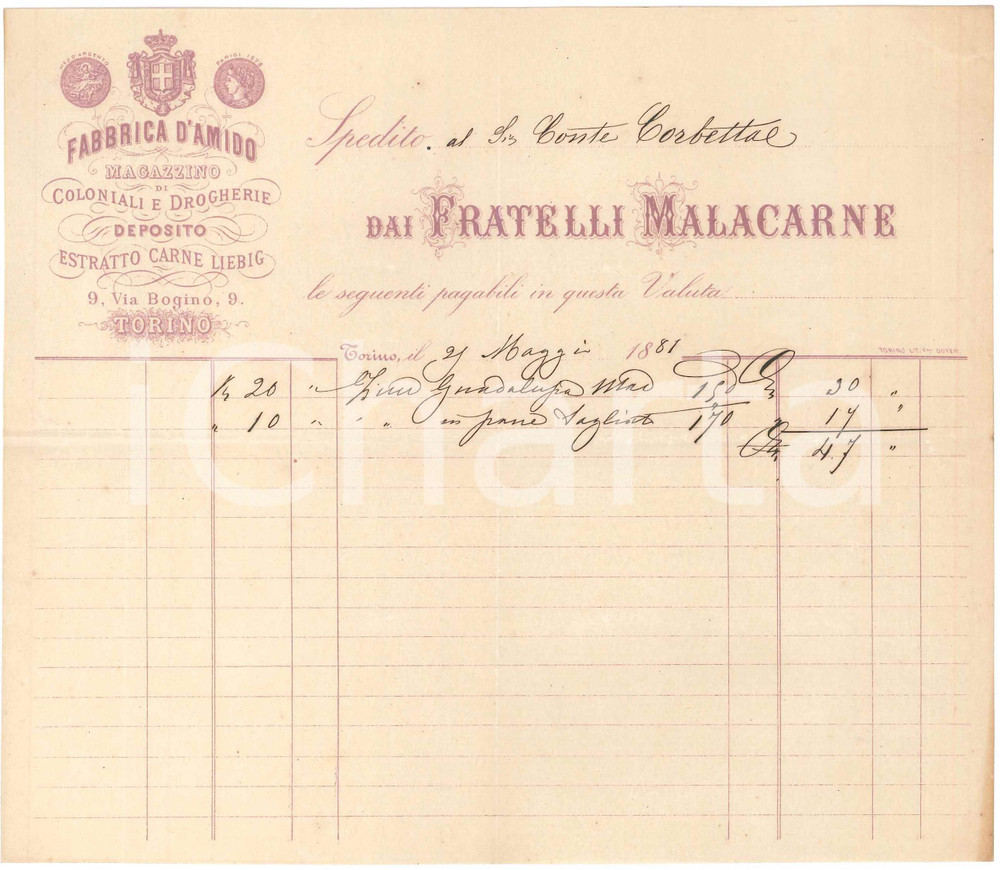 MED. D'ARGENTO
PARIGI 1878
FABBRICA D'AMIDO
MAGAZZINO
DI
COLONIALI E DROGHERIE
DEPOSITO
ESTRATTO CARNE LIEBIG
9, Via Bogino, 9.
TORINO
Spedito. al Sig Conte Corbetta
DAI FRATELLI MALACARNE
le seguenti pagabili in questa Valuta
Torino, il 21 Maggio 1881
TORINO LIT. FLLI DOYEN
K 20 " Guadalupa 150 30 "
" 10 " " in pane 170 " 17 "
47 "
iCharta